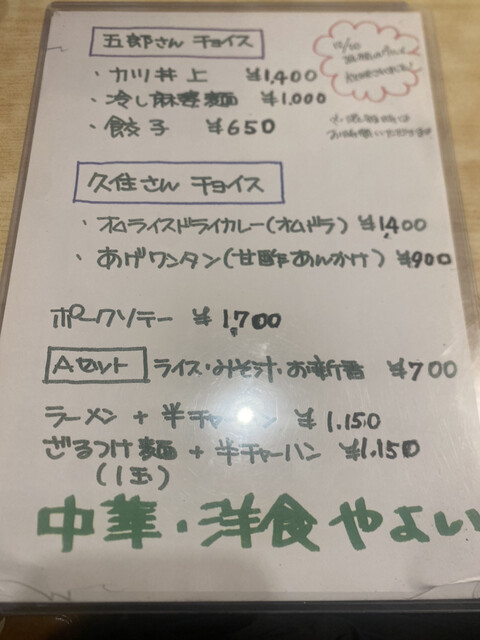 五郎さん チョイス
・カツ丼 上 ¥1,400
・冷し麻婆麺 ¥1,000
・餃子 ¥650
久住さん チョイス
・オムライスドライカレー(オムドラ) ¥1400
・あげワンタン(甘酢あんかけ) ¥900
ポークソテー ¥1,700
Aセット ライス・みそ汁・お新香 ¥700
ラーメン + 半チャーハン ¥1.150
ざるつけ麺 + 半チャーハン ¥1.150
(1玉)
中華・洋食 やよい